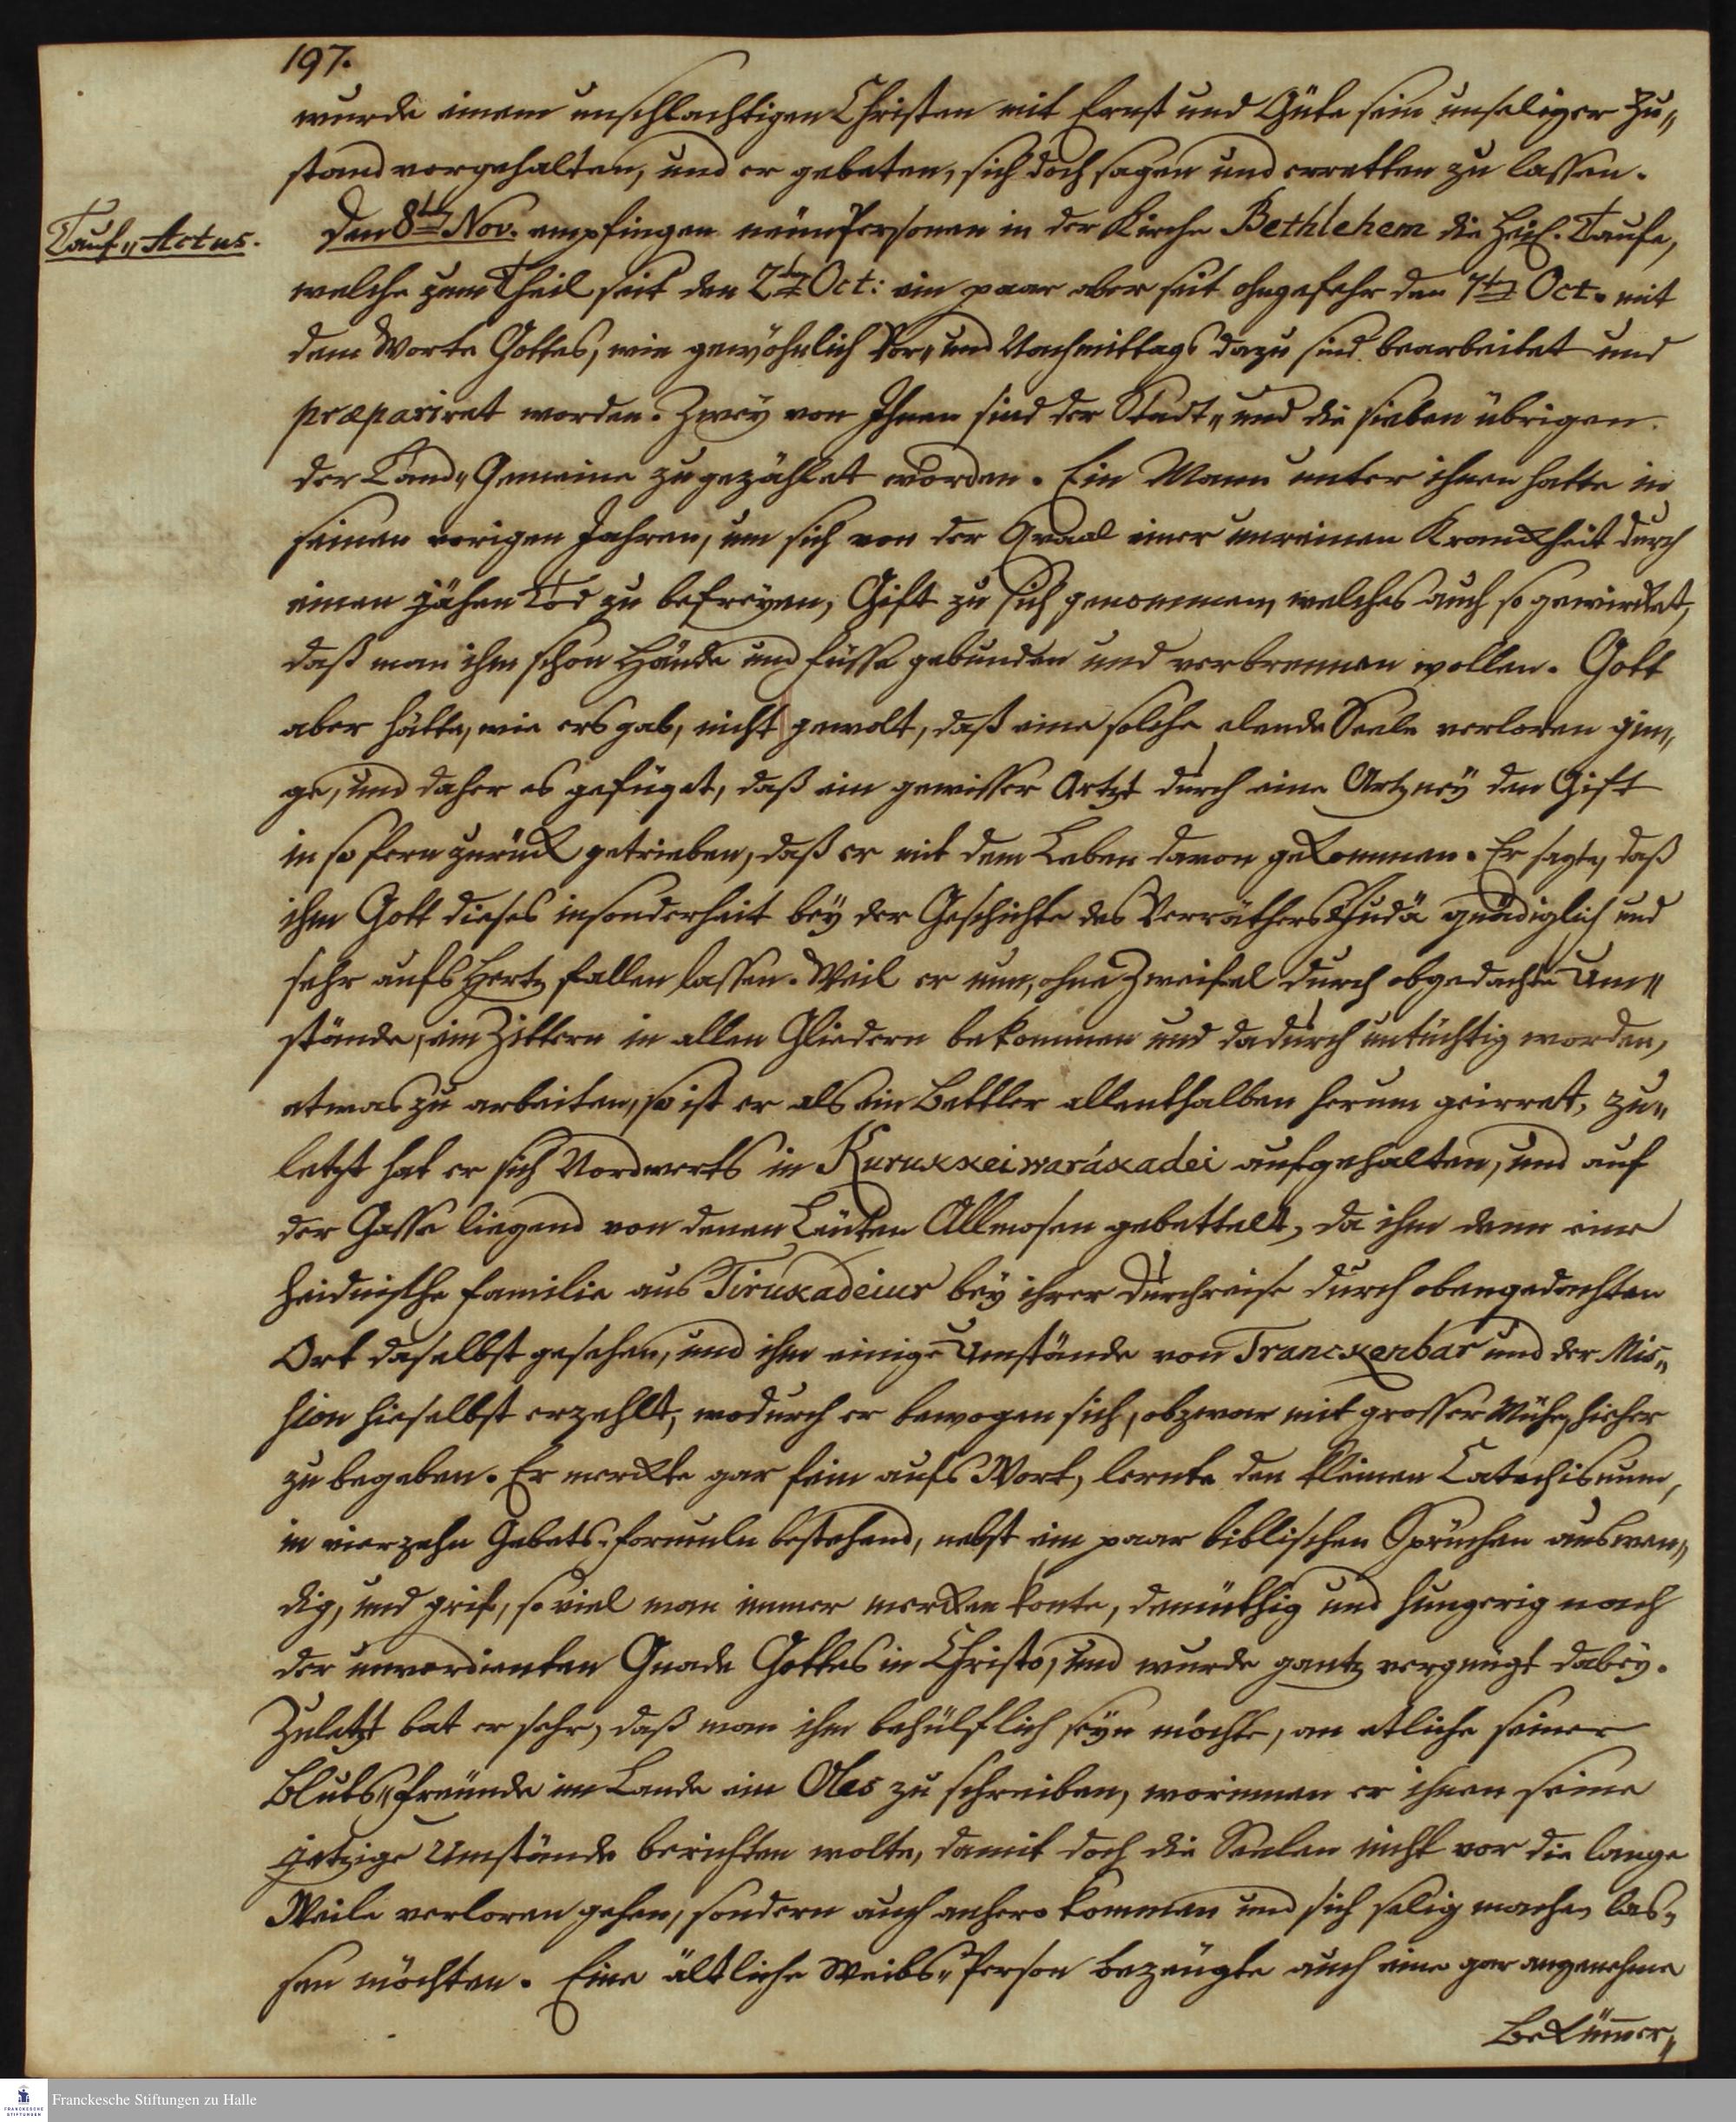 197.
wurde einem unschlachtigen Christen mit Ernst und Güte sein unseliger Zu„
stand vorgehalten, und er gebeten, sich doch sagen und erretten zu lassen.
Tauf„ Actus.
Den 8ten Nov. empfingen neün Personen in der Kirche Bethlehem die Heil. Taufe,
welche zum Theil seit den 2ten Oct: ein paar aber seit ohngefehr den 7ten Oct. mit
dem Worte Gottes, wie gewöhnlich Vor„ und Nachmittags dazu sind bearbeitet und
præpariret worden. Zweÿ von Ihnen sind der Stadt„ und die sieben übrigen
der Land„Gemeine zugezählet worden. Ein Mann unter ihnen hatte in
seinen vorigen Jahren, um sich von der Qvaal einer unreinen Kranckheit durch
einen gähen Tod zu befreÿen, Gift zu sich genommen, welches auch so gewircket,
daß man ihm schon Hände und Füsse gebunden und verbrennen wollen. Gott
aber hätte, wie ers gab, nicht gewolt, daß eine solche elende Seele verloren gin„
ge, und daher es gefüget, daß ein gewisser Artzt durch eine Artzneÿ den Gift
in so fern zurück getrieben, daß er mit dem Leben davon gekommen. Er sagte, daß
ihm Gott dieses insonderheit beÿ der Geschichte des Verräthers Judä gnädiglich und
sehr aufs Hertz fallen lassen. Weil er nun, ohne Zweifel durch obgedachte Um„
stände, ein Zittern in allen Gliedern bekommen und dadurch untüchtig worden,
etwas zu arbeiten, so ist er als ein Bettler allenthalben herum geirret, zu„
letzt hat er sich Nordwerts in Kurukkeiwarákadei aufgehalten, und auf
der Gasse liegend von denen Leuten Allmosen gebettelt, da ihm denn eine
heidnische Familie aus Tirukadeiur beÿ ihrer Durchreise durch obengedachten
Ort daselbst gesehen, und ihm einige Umstände von Tranckenbar und der Mis„
sion hieselbst erzehlt, wodurch er bewogen sich, obzwar mit grosser Mühe, hieher
zu begeben. Er merckte gar fein aufs Wort, lernte den kleinen Catechismum,
in vierzehn Gebets-Formuln bestehend, nebst ein paar biblischen Sprüchen auswen„
dig, und grif, so viel man immer mercken konte, demüthig und hungerig nach
der unverdienten Gnade Gottes in Christo, und wurde gantz vergnügt dabeÿ.
Zuletzt bat er sehr, daß man ihm behülflich seÿn möchte, an etliche seiner
Bluts„Freünde im Lande ein Oles zu schreiben, worinnen er ihnen seine
jetzige Umstände berichten wolte, damit doch die Seelen nicht vor die lange
Weile verloren gehen, sondern auch anhero kommen und sich selig machen las„
sen möchten. Eine ältliche Weibs„Person bezeugte auch eine gar angenehme
Bekümer„
Franckesche Stiftungen zu Halle
FRANCKESCHE
STIFTUNGEN